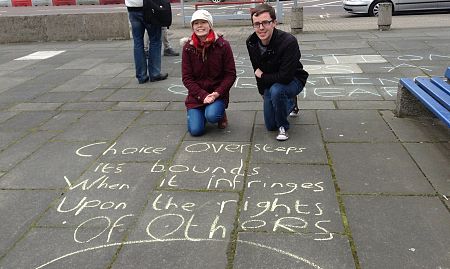 Choice oversteps
its bounds
When it infringes
Upon the rights
Of Others